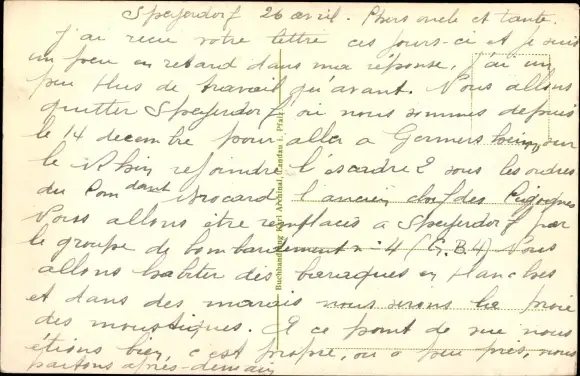 Speyerdorf 26 avril. Chers oncle et tante.
J'ai recu votre lettre ces jours-ci et je suis
un peu en retard dans ma réponse, j'ai un
peu plus de travail qu'avant. Nous allons
quitter Speyerdorf où nous sommes depuis
le 14 decembre pour aller a Germersheim sur
le Rhin rejoindre l'escadre 2 sous les ordres
du Comdant Brocard l'ancien chef des Cigognes
Nous allons être remplacés a Speyerdorf par
le groupe de bombardement n: 4 (G.B.4) Nous
allons habiter des baraques en planches
et dans des marais nous serons la proie
des moustiques. A ce point de vue nous
étions bien, c'est propre, ou a peu près, nous
partons après-demain
Buchhandlung Karl Archinal, Landau i. Pfalz